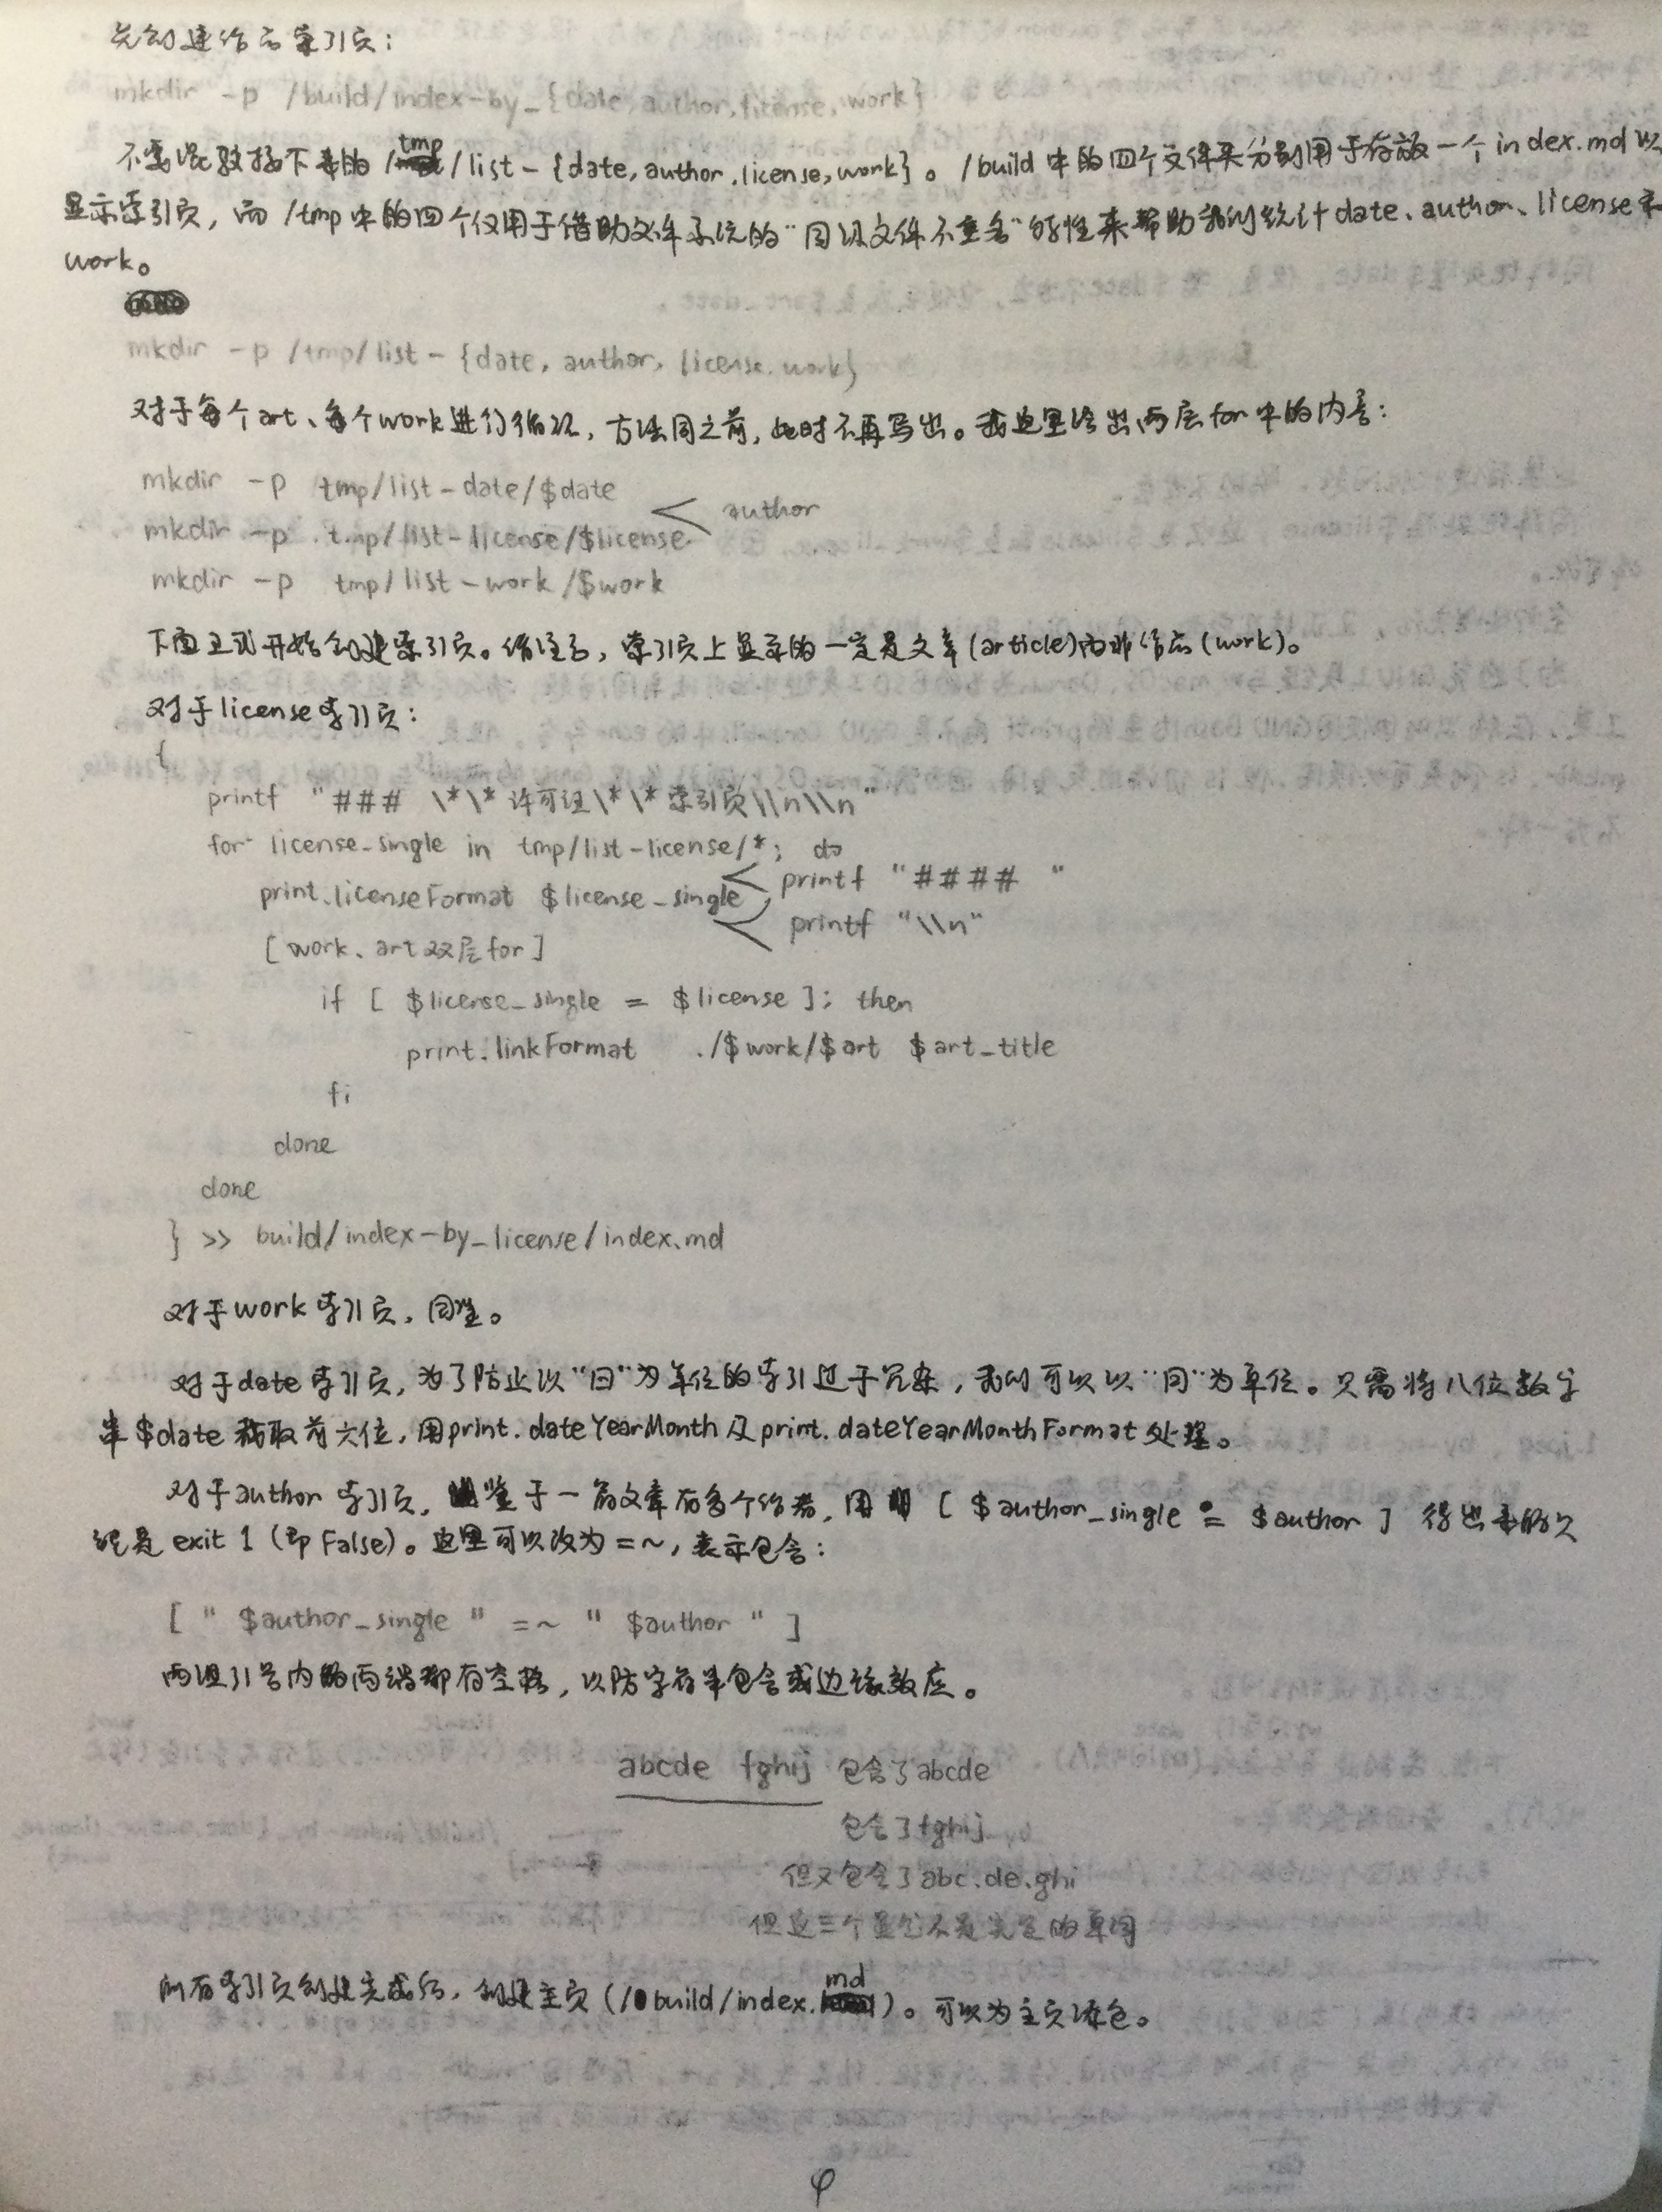 先创建作品索引页：
mkdir -p /build/index-by_{date,author,license,work}
不要混淆接下来的 /tmp/list-{date,author,license,work}。/build 中的四个文件夹分别用于存放一个 index.md 以
显示索引页，而 /tmp 中的四个仅用于借助文件系统的“同级文件不重名”的特性来帮助我们统计 date、author、license 和
work。
mkdir -p /tmp/list-{date, author, license, work}
对于每个 art、每个 work 进行循环，方法同之前，此时不再写出。我这里给出两层 for 中的内容：
mkdir -p tmp/list-date/$date
author
mkdir -p tmp/list-license/$license
mkdir -p tmp/list-work/$work
下面正式开始创建索引页。请注意，索引页上显示的一定是文章(article)而非作品(work)。
对于license索引页：
{
printf "### \*\* 许可证\*\* 索引页\\n\\n"
for license_single in tmp/list-license/*; do
printf "#### "
print.licenseFormat $license_single
printf "\\n"
[work、art双层for]
if [ $license_single = $license ]; then
print.linkFormat ./$work/$art $art_title
fi
done
done
} >> build/index-by_license/index.md
对于work索引页，同理。
对于date索引页，为了防止以“日”为单位的索引过于冗杂，我们可以以“月”为单位。只需将八位数字
串$date截取前六位，用print.dateYearMonth及print.dateYearMonthFormat处理。
对于author索引页，鉴于一篇文章有多个作者，用 [ $author_single = $author ] 得出来的
是 exit 1 (即 False)。这里可以改为 =~，表示包含：
[ " $author_single " =~ " $author " ]
两组引号内的两端都有空格，以防字符串包含或边缘效应。
abcde fghij 包含了abcde
包含了fghij
但又包含了abc、de、ghi
但这三个显然不是完整的单词
所有索引页创建完成后，创建主页 (/build/index.md)。可以为主页添色。